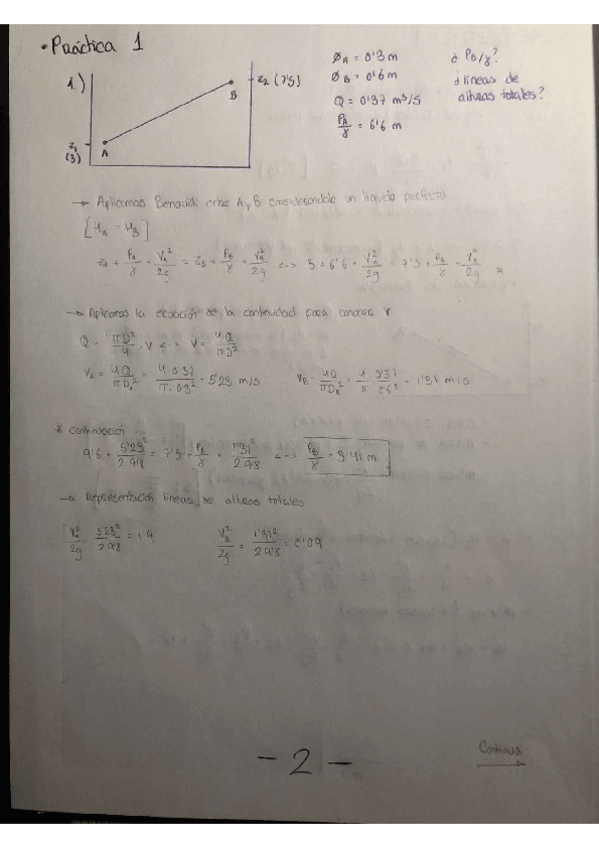 • Práctica 1
1.)
z₂ (7'5)
B
z₁ (3)
A
ø_A = 0'3 m
ø_B = 0'6 m
Q = 0'37 m³/s
P_A/γ = 6'6 m
¿ P_B/γ?
¿ líneas de
alturas totales?
→ Aplicamos Bernoulli entre A y B considerándole un líquido perfecto
[H_A = H_B]
z_A + P_A/γ + V_A²/2g = z_B + P_B/γ + V_B²/2g <-> 3 + 6'6 + V_A²/2g = 7'5 + P_B/γ + V_B²/2g *
→ Aplicamos la ecuación de la continuidad para conocer V
Q = πD²/4 · V <-> V = 4Q/πD²
V_A = 4Q/πD_A² = 4·0'37/π·0'3² = 5'23 m/s
V_B = 4Q/πD_B² = 4/π 0'37/0'6² = 1'31 m/s
* continuación
9'6 + 5'23²/2·9'8 = 7'5 + P_B/γ + 1'31²/2·9'8 <-> P_B/γ = 3'41 m
→ Representación líneas de alturas totales
V_A²/2g = 5'23²/2·9'8 = 1'4
V_B²/2g = 1'31²/2·9'8 = 0'09
- 2 -
Continua